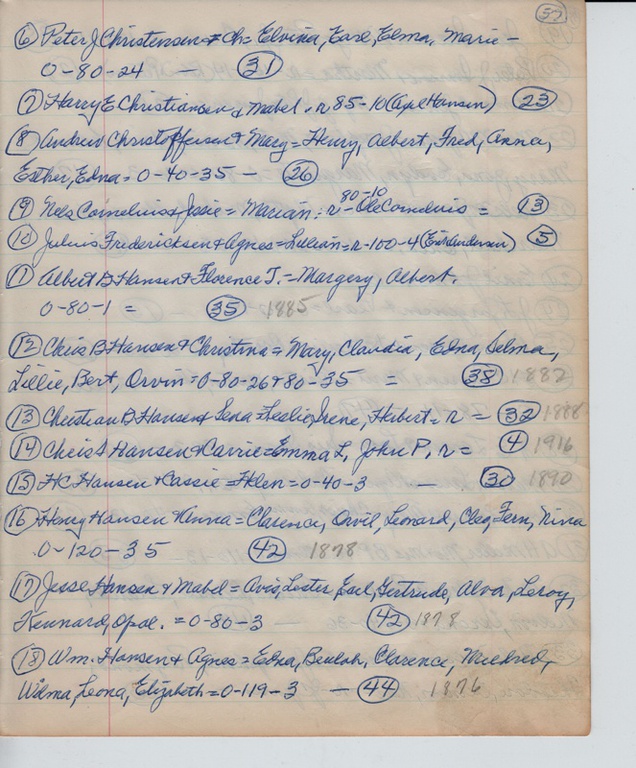 57
⑥ Peter J Christensen & Ch= Elvina, Earl, Elma, Marie -
0-80-24 - 31
⑦ Harry E Christiansen & Mabel. r 85-10 (Axel Hansen) 23
⑧ Andrew Christoffersen & Mary = Henry, Albert, Fred, Anna,
Esther, Edna = 0-40-35 - 26
⑨ Nels Cornelius & Jessie = Marian: r 80-10 - Ole Cornelius = 13
⑩ Julius Fredericksen & Agnes = Lillian = r-100-4 ( Andersen) 5
⑪ Albert B Hansen & Florence T. = Margery, Albert.
0-80-1 = 35 1885
⑫ Chris B Hansen & Christina = Mary, Claudia, Edna, Selma,
Lillie, Bert, Orvin = 0-80-26 & 80-35 = 38 1882
⑬ Christian B Hansen & Lena = Leslie, Irene, Hebert = r = 32 1888
⑭ Chris Hansen & Carrie = Emma L, John P, r = 4 1916
⑮ HC Hansen & Cassie = Helen = 0-40-3 - 30 1890
⑯ Henry Hansen & Minna = Clarence, Orvil, Leonard, Cleo, Fern, Nina
0-120-35 42 1878
⑰ Jesse Hansen & Mabel = Avis, Lester, Earl, Gertrude, Alva, Leroy,
Kennard, Opal. = 0-80-3 42 1878
⑱ Wm. Hansen & Agnes = Edna, Beulah, Clarence, Mildred,
Wilma, Leona, Elizabeth = 0-119-3 - 44 1876